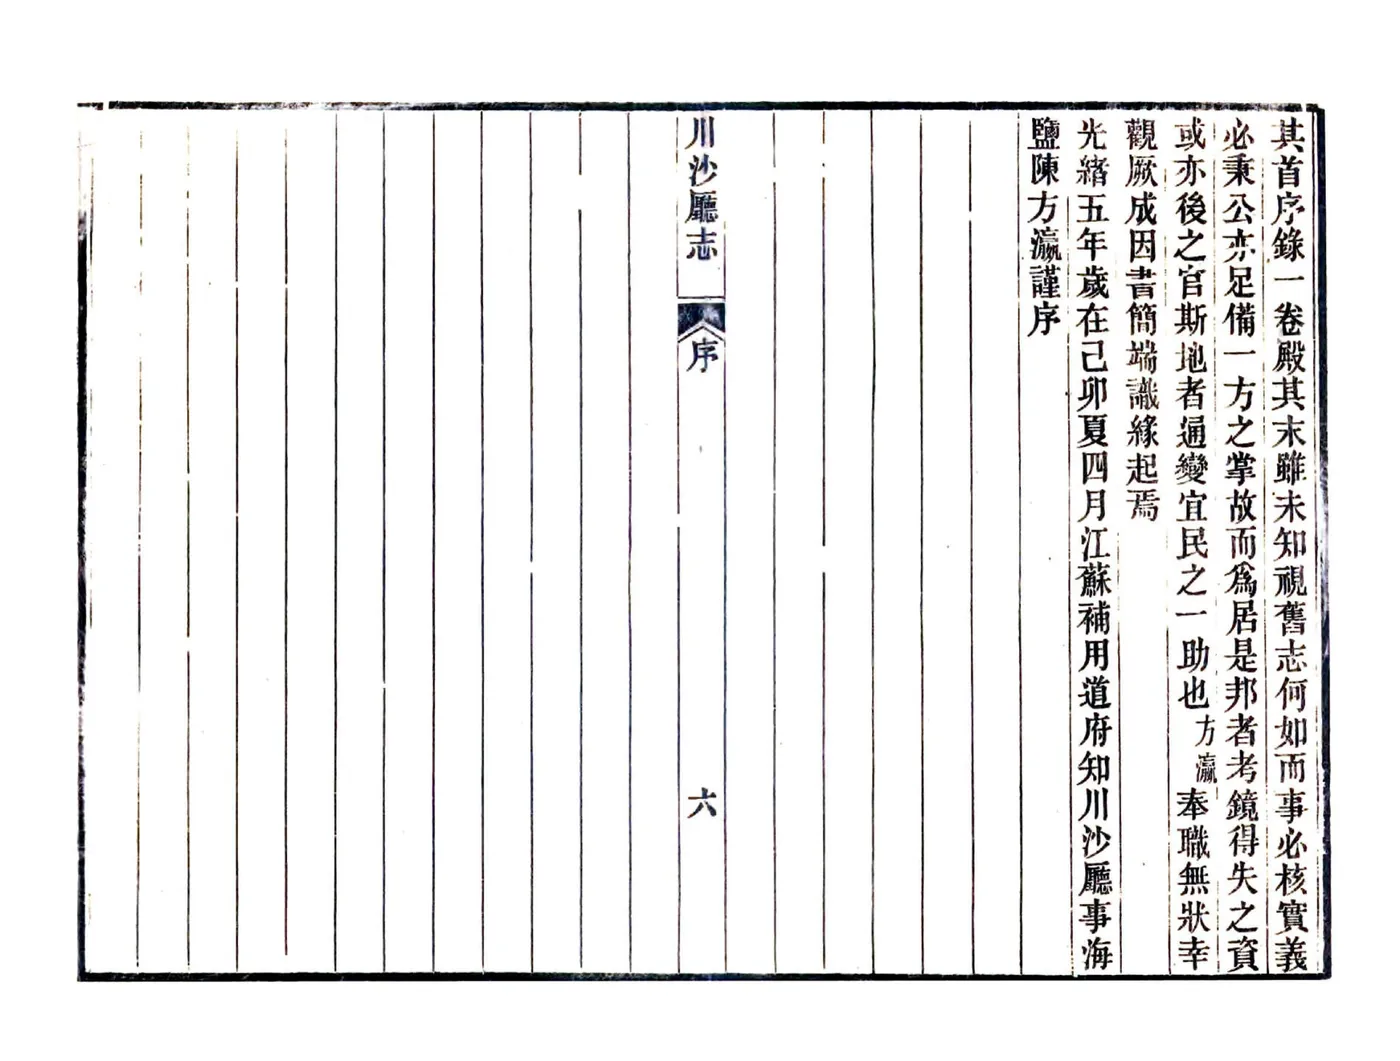 其首序錄一卷殿其末雖未知視舊志何如而事必核實義
必秉公亦足備一方之掌故而爲居是邦者考鏡得失之資
或亦後之官斯地者通變宜民之一助也方瀛奉職無狀幸
觀厥成因書簡端識緣起焉
光緒五年歲在己卯夏四月江蘇補用道府知川沙廳事海
鹽陳方瀛謹序
川沙廳志
序
六